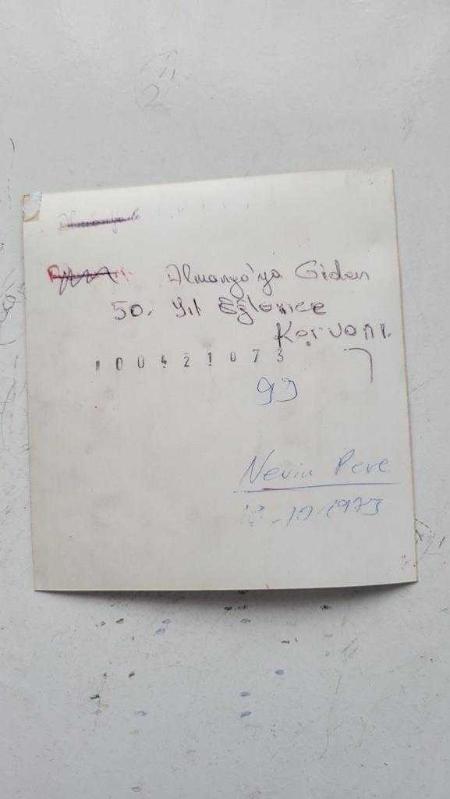 Almanya'ya Giden
50. Yıl Eğlence
Karvanı.
100421073
Nevin Pere
.10.1973